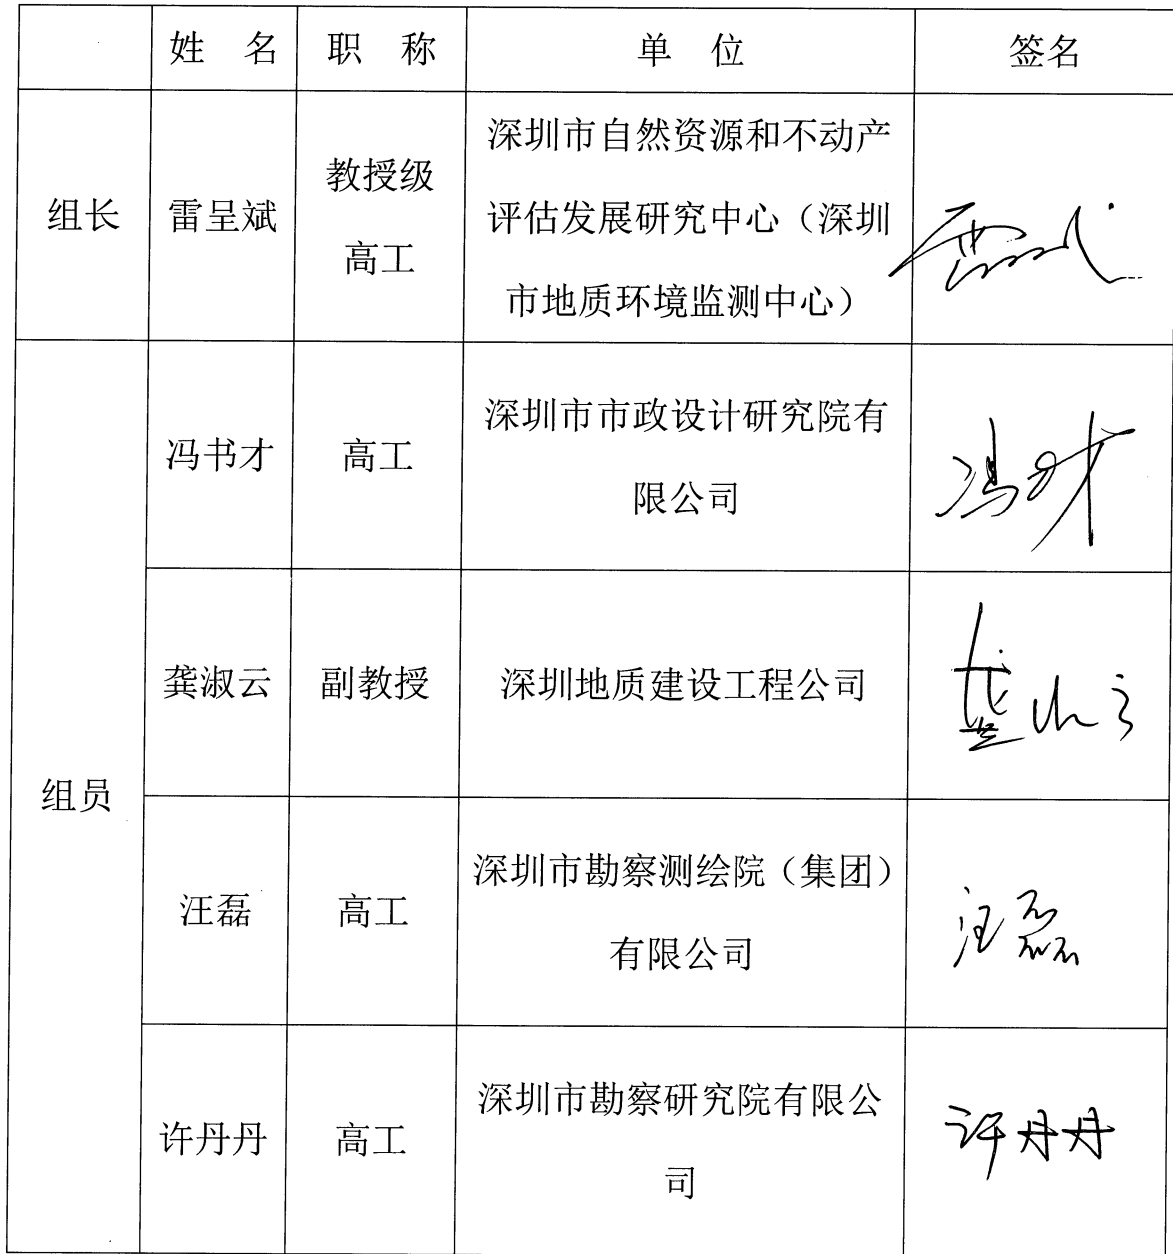 姓 名 职 称 单 位 签名
组长 雷呈斌 教授级高工 深圳市自然资源和不动产
评估发展研究中心（深圳
市地质环境监测中心）
组员
冯书才 高工 深圳市市政设计研究院有
限公司 冯书才
龚淑云 副教授 深圳地质建设工程公司 龚淑云
汪磊 高工 深圳市勘察测绘院（集团）
有限公司 汪磊
许丹丹 高工 深圳市勘察研究院有限公
司 许丹丹